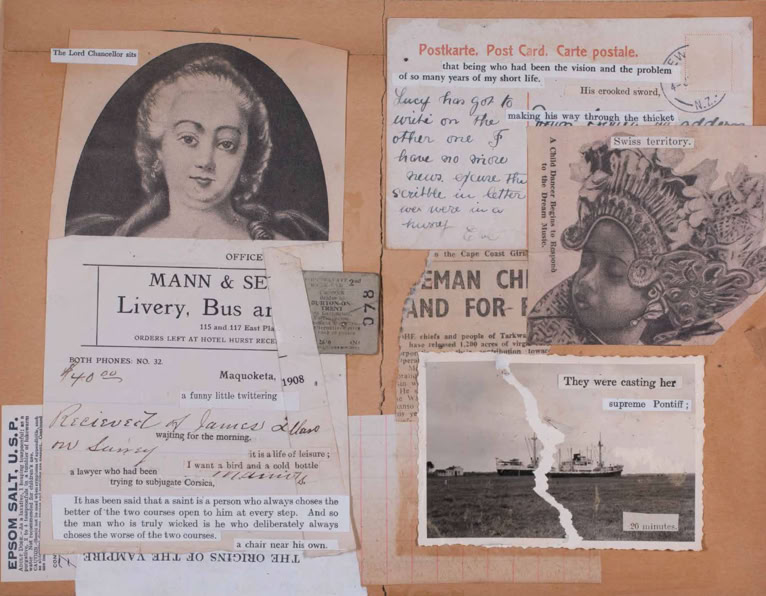 The Lord Chancellor sits
Postkarte. Post Card. Carte postale.
that being who had been the vision and the problem
of so many years of my short life.
His crooked sword,
N.Z.
making his way through the thicket
Lucy has got to
write on the
other one I
have no more
news excuse the
scribble in letter
was in a
Swiss territory.
A Child Dancer Begins to Respond
to the Dream Music.
OFFICE
MANN & SE
Livery, Bus an
115 and 117 East Pla
ORDERS LEFT AT HOTEL HURST RECE
BOTH PHONES: NO. 32
$40.00
Maquoketa,
1908
2nd
BURTON-ON-
TRENT
078
a funny little twittering
Recieved of James
on Surrey
waiting for the morning.
it is a life of leisure;
I want a bird and a cold bottle
a lawyer who had been
trying to subjugate Corsica,
It has been said that a saint is a person who always chooses the
better of the two courses open to him at every step. And so
the man who is truly wicked is he who deliberately always
chooses the worse of the two courses.
a chair near his own.
THE ORIGINS OF THE VAMPIRE
EPSOM SALT, U.S.P.
n the Cape Coast Girl
EMAN CHI
AND FOR F
HE chiefs and people of Tarkwa
have released 1,200 acres of virgi
They were casting her
supreme Pontiff;
20 minutes.